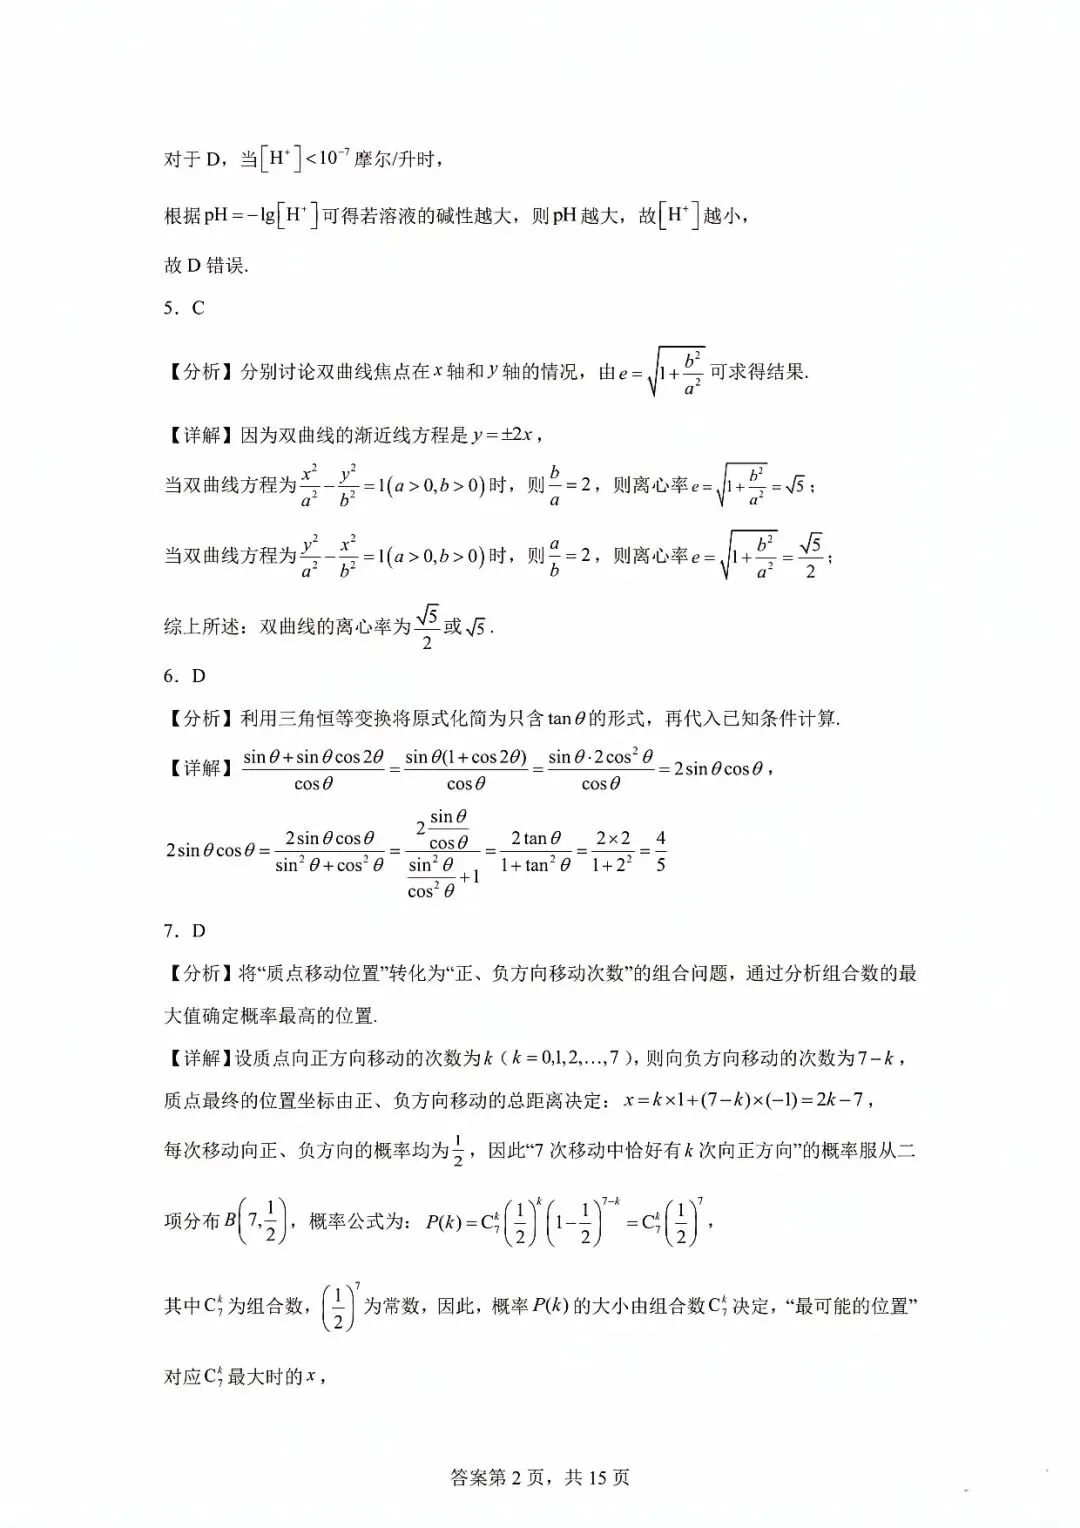 对于 D，当[H⁺]<10⁻⁷摩尔/升时，
根据 pH=−lg[H⁺]可得若溶液的碱性越大，则 pH 越大，故[H⁺]越小，
故 D 错误.
5．C
【分析】分别讨论双曲线焦点在 x 轴和 y 轴的情况，由 e=√(1+b²/a²) 可求得结果.
【详解】因为双曲线的渐近线方程是 y=±2x，
当双曲线方程为 x²/a²−y²/b²=1(a>0,b>0)时，则 b/a=2，则离心率 e=√(1+b²/a²)=√5；
当双曲线方程为 y²/a²−x²/b²=1(a>0,b>0)时，则 a/b=2，则离心率 e=√(1+b²/a²)=√5/2；
综上所述：双曲线的离心率为 √5/2 或 √5.
6．D
【分析】利用三角恒等变换将原式化简为只含 tanθ 的形式，再代入已知条件计算.
【详解】(sinθ+sinθcos2θ)/cosθ=sinθ(1+cos2θ)/cosθ=sinθ·2cos²θ/cosθ=2sinθcosθ，
2sinθcosθ=2sinθcosθ/(sin²θ+cos²θ)=(2 sinθ/cosθ)/(sin²θ/cos²θ+1)=2tanθ/(1+tan²θ)=2×2/(1+2²)=4/5
7．D
【分析】将“质点移动位置”转化为“正、负方向移动次数”的组合问题，通过分析组合数的最
大值确定概率最高的位置.
【详解】设质点向正方向移动的次数为 k（k=0,1,2,…,7），则向负方向移动的次数为 7−k，
质点最终的位置坐标由正、负方向移动的总距离决定：x=k×1+(7−k)×(−1)=2k−7，
每次移动向正、负方向的概率均为 1/2，因此“7 次移动中恰好有 k 次向正方向”的概率服从二
项分布 B(7,1/2)，概率公式为：P(k)=C₇ᵏ(1/2)ᵏ(1−1/2)⁷⁻ᵏ=C₇ᵏ(1/2)⁷，
其中 C₇ᵏ 为组合数，(1/2)⁷ 为常数，因此，概率 P(k) 的大小由组合数 C₇ᵏ 决定，“最可能的位置”
对应 C₇ᵏ 最大时的 x，
答案第 2 页，共 15 页